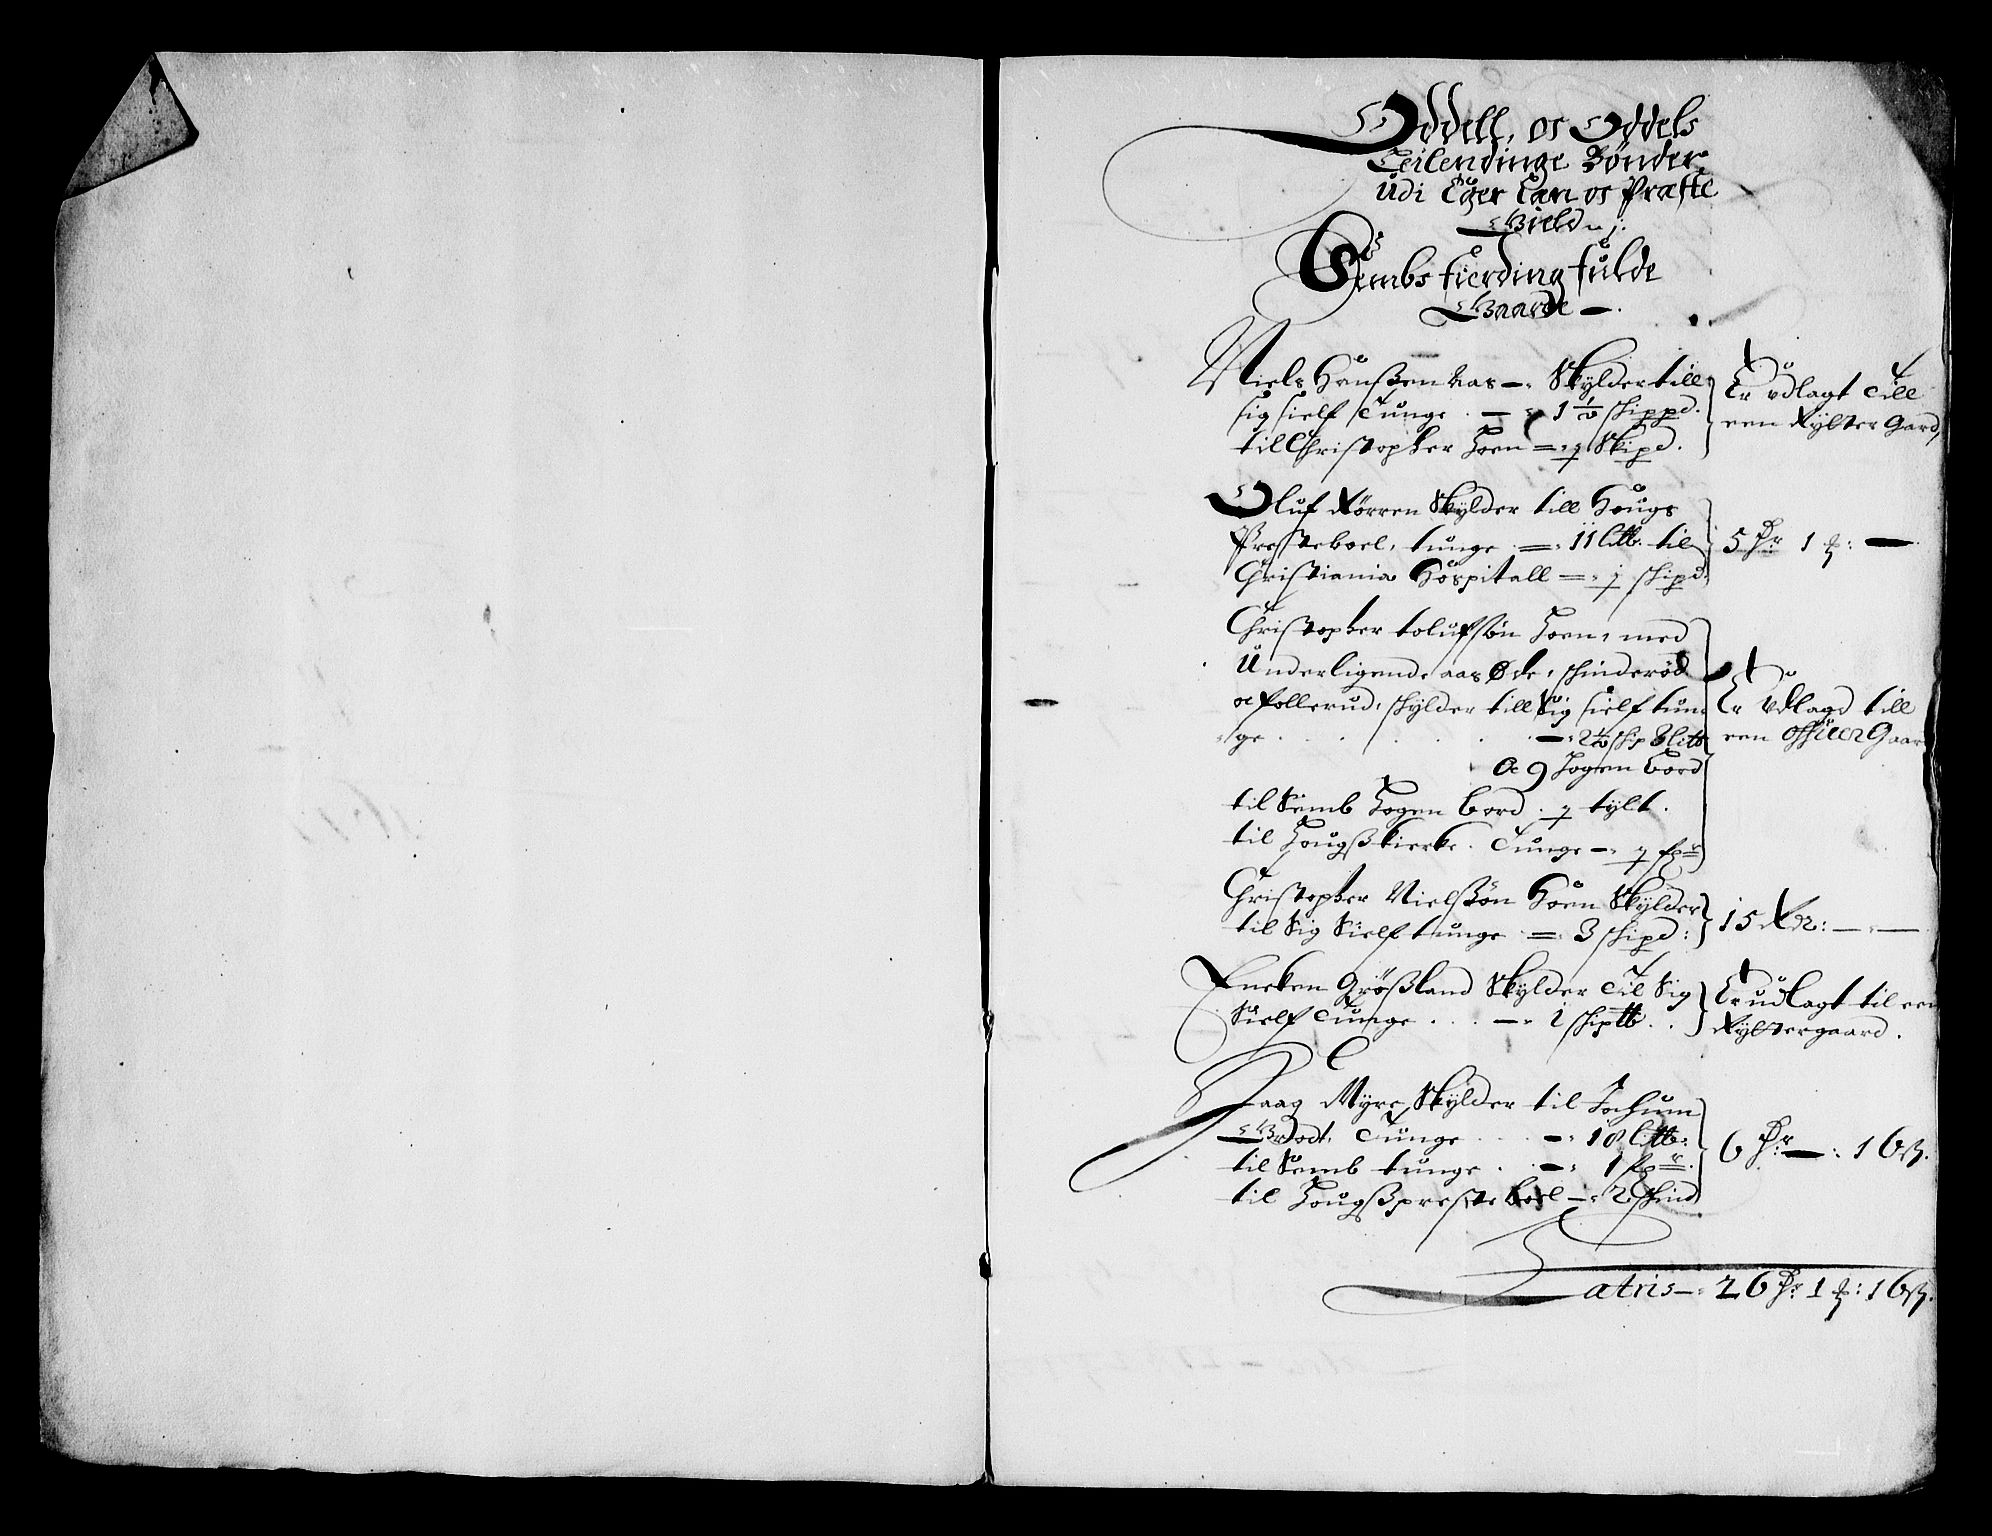 Oddell, oc Oddels
Leilendinge Bönder
Udi Eger Len oc Præste
Gield ./.
Sembs fierding fulde
Gaarde —.
Niels Hanßen aas —. Skylder till
sig sielf Tunge . — 1 1/2 skippd.
til Christopher Hoen = 1 Skipd.
Er udlagt till
een Rytter Gard,
Oluf Kørren Skylder till Hougs
Presteboel, tunge = 11 litt: til
Christiania Hospitall = 1 skipd
5 Dr 1 ƒ: —
Christopher tolufsøn Hoen, med
Underligende aas Øde, skinderød
oc follerud, skylder till Sig sielf tun
ge . . . . . —. 2 1/2 skip 8 litt
Oc 9 Hogen bord
til Semb Hogen bord . 1 tylt.
til Hougß Kierke . Tunge —. 1 fr
Er Udlagd till
een officer Gaar
Christopher Nielsßøn Hoen Skylder
til Sig Sielf tunge = 3 skipd:
15 Dr: —. —
Eneken Größland Skylder til Sig
Sielf Tunge . . . —. 1 skiptt. .
Er udlagt til een
Ryttergaard.
Haag Myre Skylder til Jochum
Brodt, Tunge . . . —. 18 litt:
til Semb tunge . —. 1 fr.
til Hougßpresteboel —. 2 skind
6 Dr: —: 16 ß.
Latris —. 26 Dr: 1 ƒ: 16 ß.